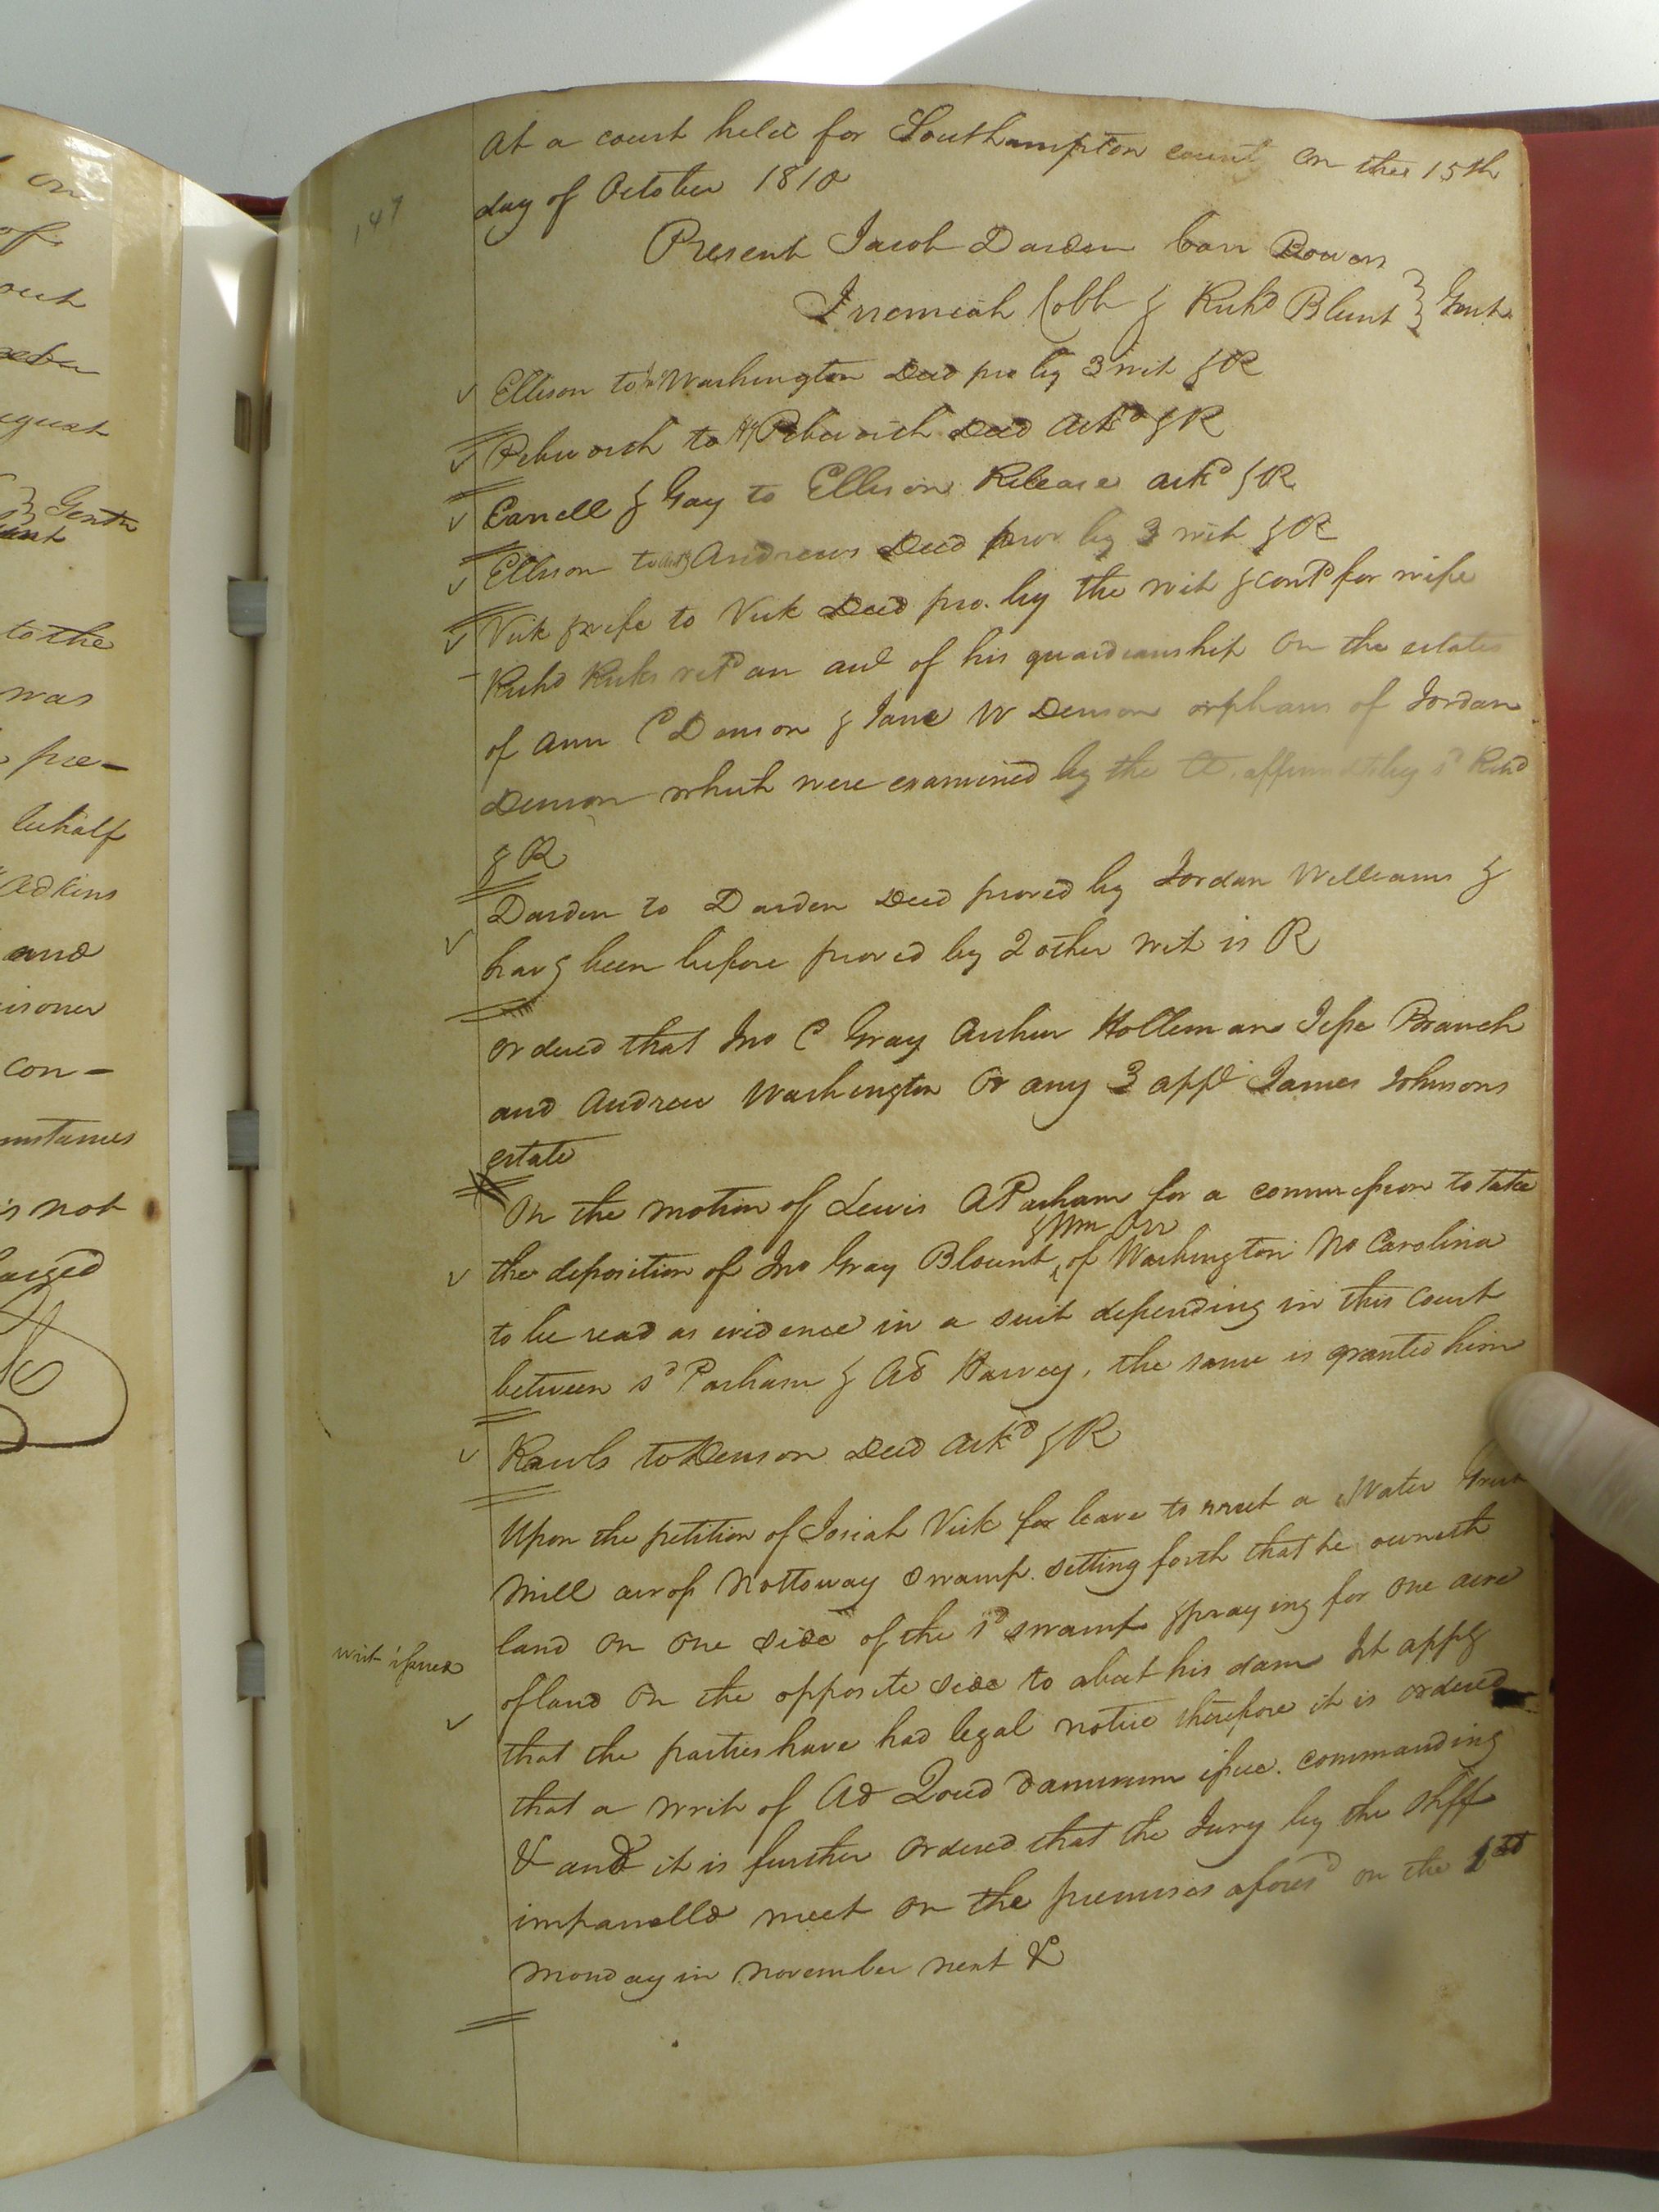 on
of
out
quest
Gentn
to the
was
pre-
behalf
Adkins
and
isoner
con-
mstances
is not
147
At a court held for Southampton county on the 15th
day of October 1810
Present Jacob Darden Carr Bowers
Jeremiah Cobb & Richd Blunt } Gent.
Ellison to Washington Deed pro by 3 wit & R
Pebworth to Hy Pebworth Deed Ackd & R
Carrell & Gay to Ellison Release ackd & R
Ellison to Andrews Deed prov by 3 wit & R
Vick & wife to Vick Deed pro. by the wit & contd for wife
Richd Ricks retd an acct of his guardianship on the estates
of Ann C Denson & Jane W Denson orphans of Jordan
Denson which were examined by the Ct. affirmed by sd Richd
& R
Darden to Darden Deed proved by Jordan Williams &
havg been before proved by 2 other wit is R
Ordered that Jno C Gray Arthur Holleman Jesse Branch
and Andrew Washington or any 3 appr James Johnsons
estate
On the motion of Lewis A Parham for a commission to take
& Wm Orr
the deposition of Jno Gray Blount ^ of Washington No Carolina
to be read as evidence in a suit depending in this court
between sd Parham & Ad Harvey, the same is granted him
Rawls to Denson Deed Ackd & R
Upon the petition of Josiah Vick for leave to erect a Water Grist
Mill across Nottoway Swamp. setting forth that he owneth
land on one side of the sd swamp & praying for one acre
writ issued
of land on the opposite side to abut his dam It appg
that the parties have had legal notice therefore it is ordered
that a writ of Ad Quod damnum issue. commanding
&c and it is further ordered that the Jury by the Shff
impanelld meet on the premises aforesd on the 1st
Monday in November next &c